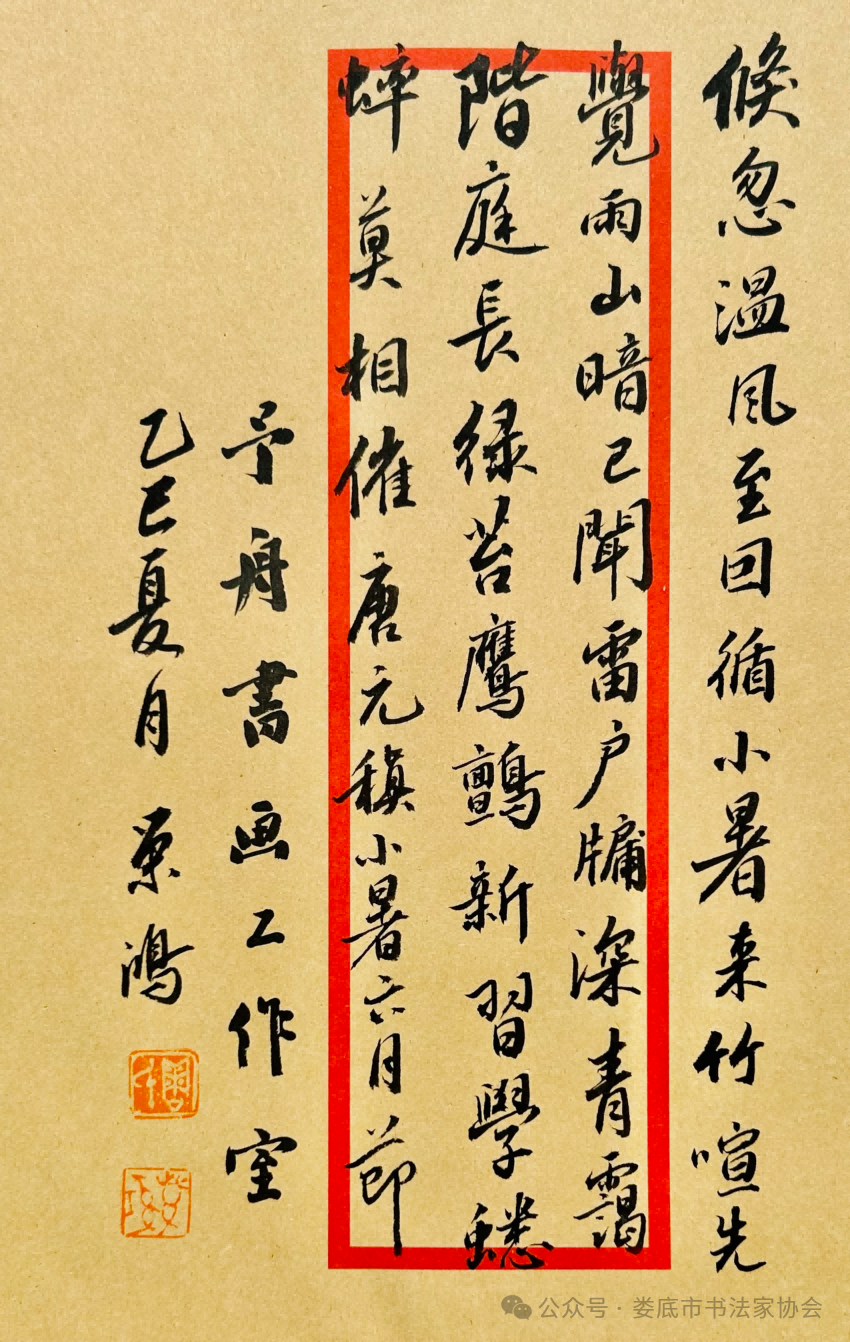 倏忽温風至回循小暑来竹喧先
覺雨山暗已聞雷户牖深青靄
階庭長緑苔鷹鸇新習學蟋
蟀莫相催唐元稹小暑六月節
予舟書画工作室
乙巳夏月 鴻
公众号·娄底市书法家协会